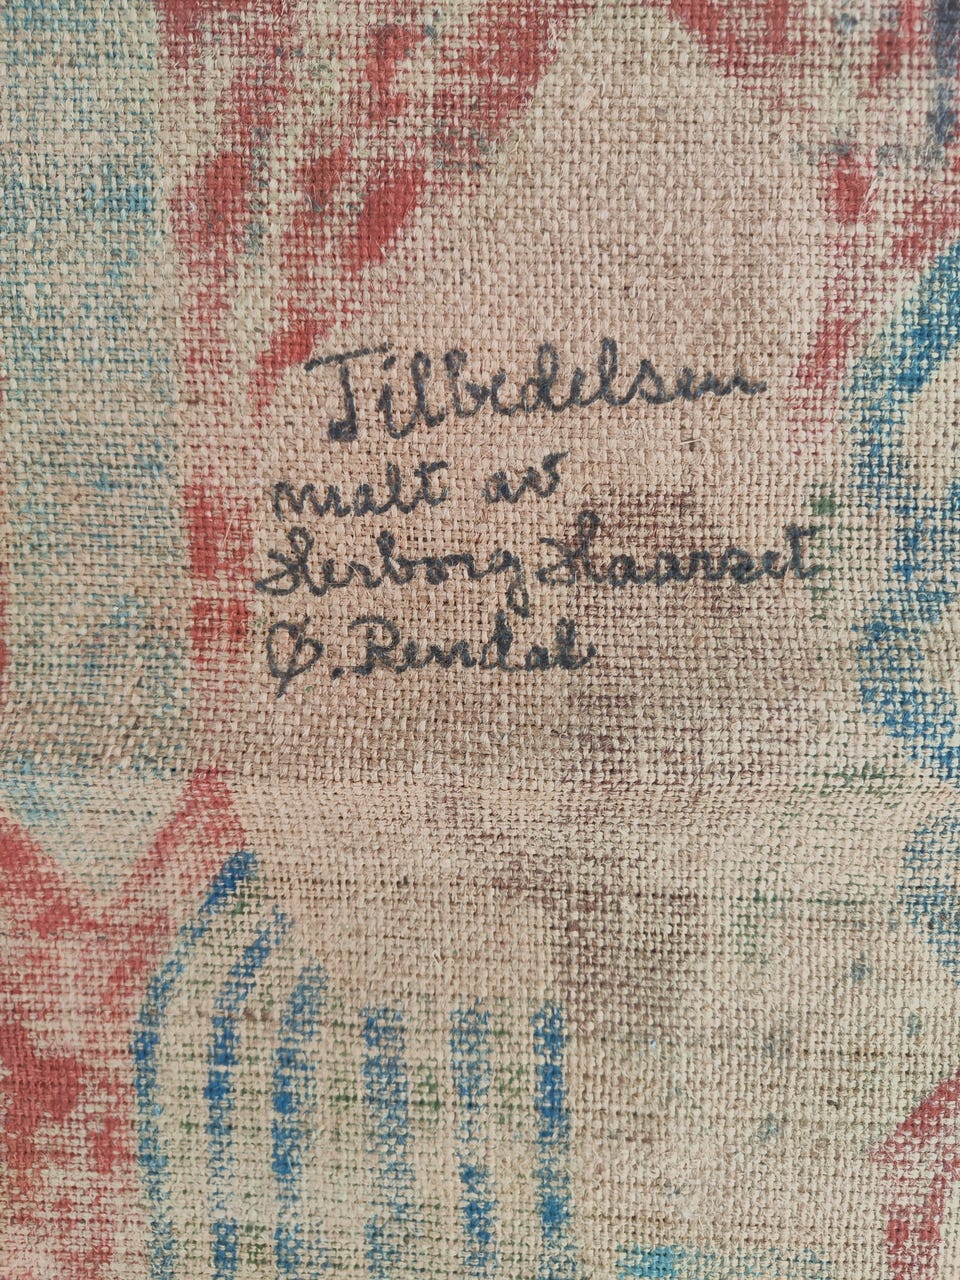 Tilbedelsen
malt av
Herborg Haarset
Ø. Rendal